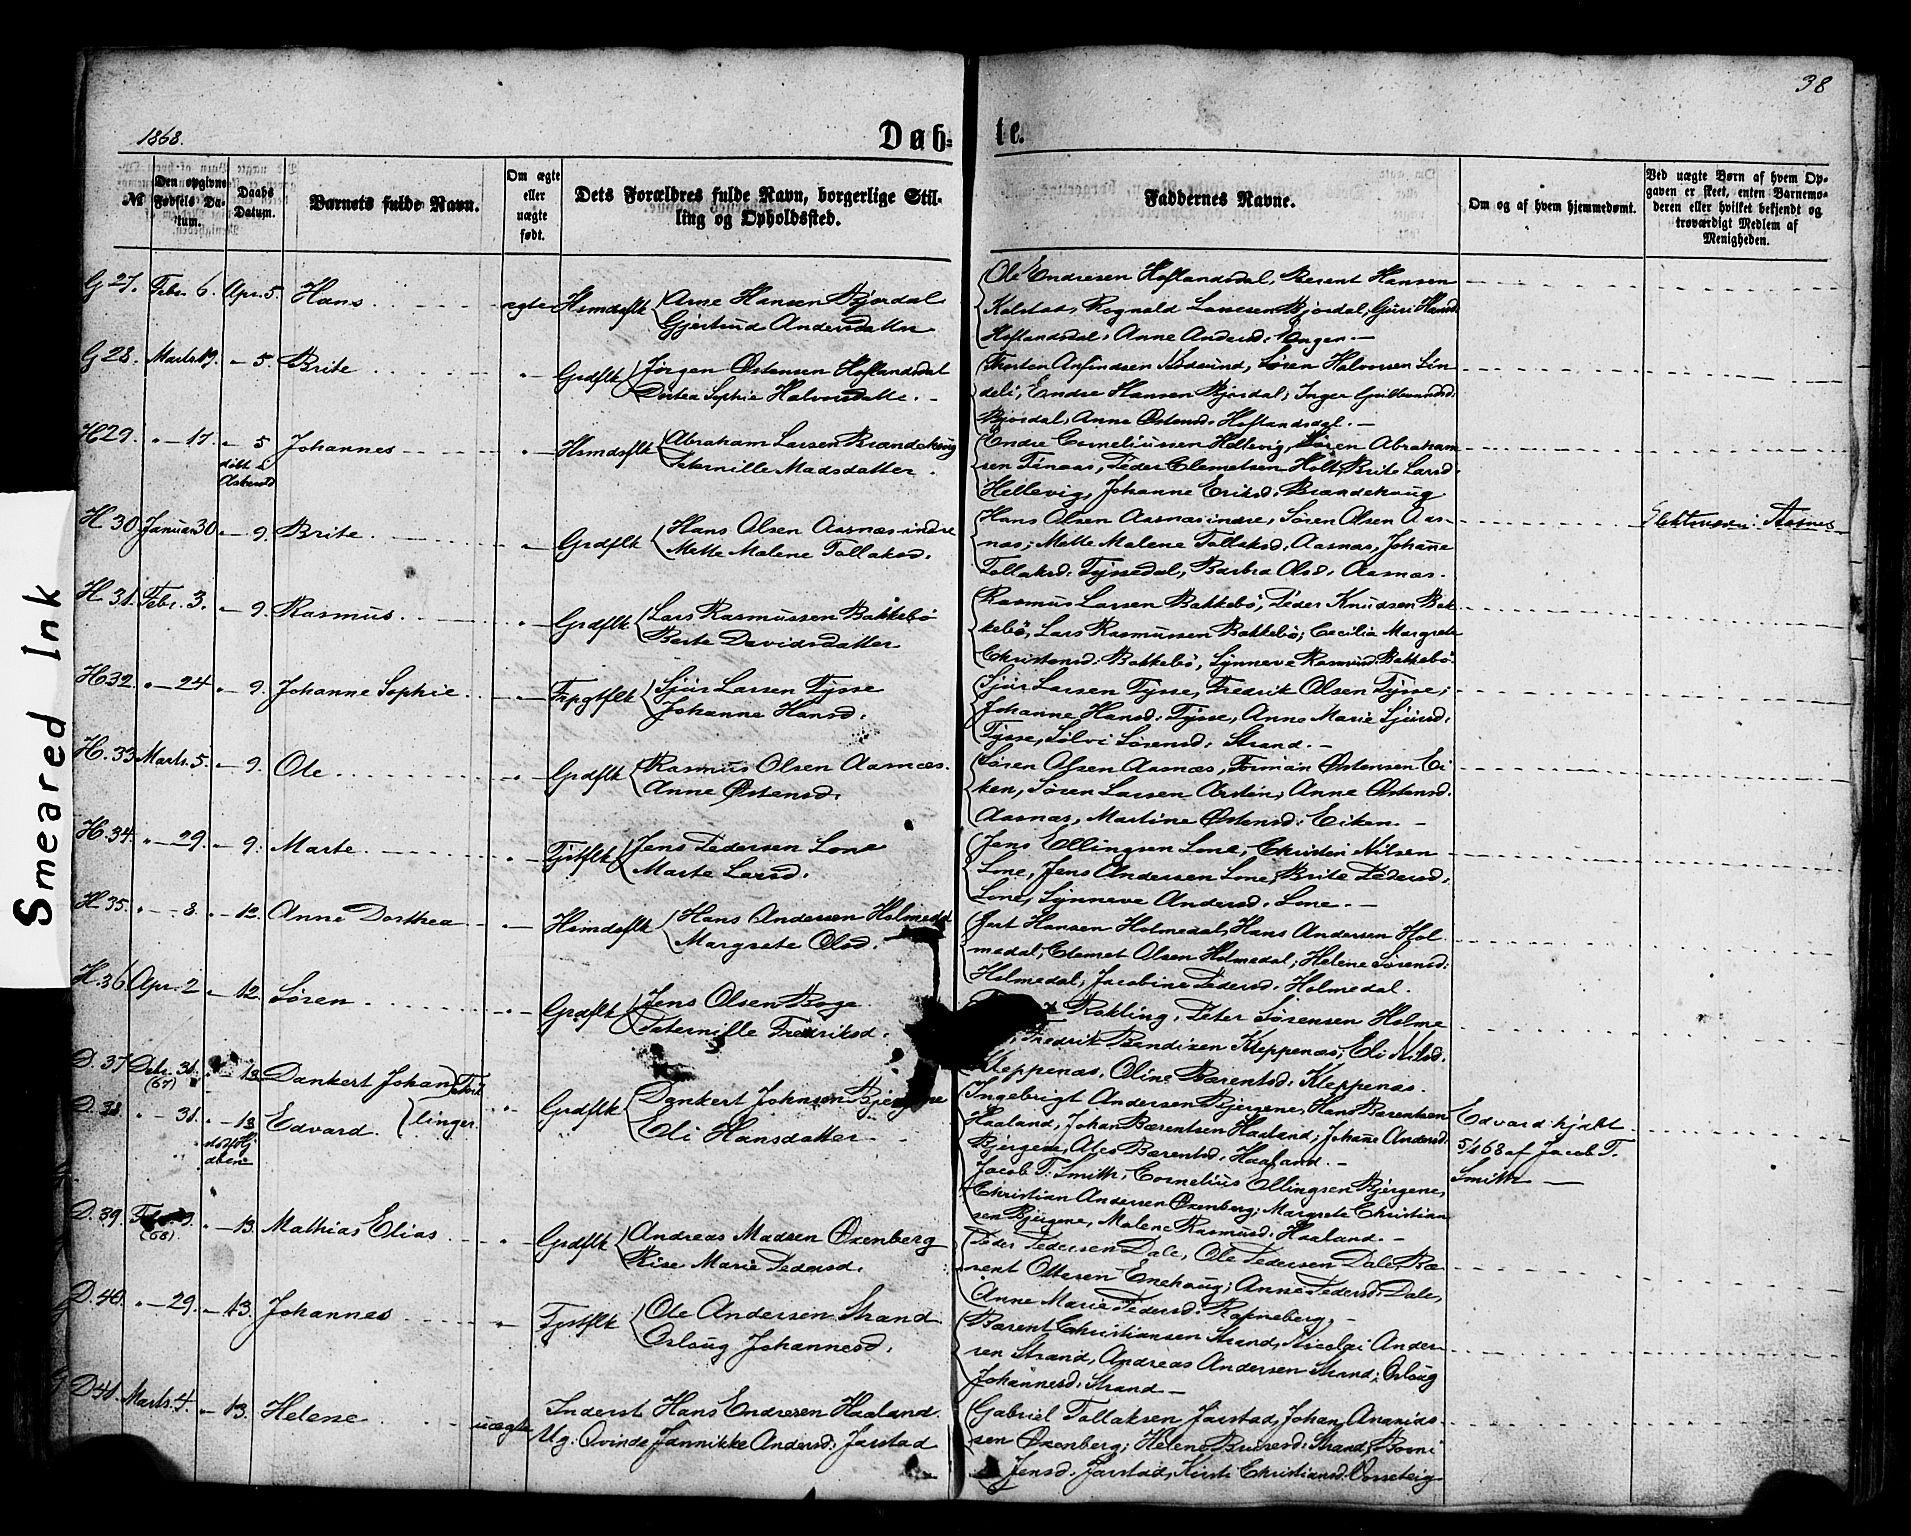 38
1868.
Døb-
te.
№
Den opgivne Fødsels Datum.
Daabs Datum.
Barnets fulde Navn.
Om ægte eller uægte født.
Dets Forældres fulde Navn, borgerlige Stilling og Opholdssted.
Faddernes Navne.
Om og af hvem hjemmedøbt.
Ved uægte Børn af hvem Opgaven er skeet, enten Barnemoderen eller hvilket bekjendt og troværdigt Medlem af Menigheden.
G 27. Febr. 6. Apr. 5. Hans ægte Hsmdsflk Arne Hansen Bjordal
Gjertrud Andersdatter
Ole Endresen Hoflandsdal, Berent Hansen
Kolstad, Rognald Larsen Bjordal; Guri Hansd.
Hoflandsdal, Anne Andersd. Engen.—
G 28. Marts 19. - 5. Brite " Grdflk Jørgen Østensen Hoflandsdal
Dortea Sophie Halvorsdatter.
Thorsten Anfindsen Nødsund, Søren Halvorsen Lin-
deli, Endre Hansen Bjordal; Inger Guldbrandsd.
Bjordal, Anne Østensd. Hoflandsdal.—
H 29. " — 17. " 5 Johannes " Hsmdsflk Abraham Larsen Brandehoug
Peternille Madsdatter.
døbt i
Endre Corneliussen Hellevig, Søren Abraham-
sen Finaas, Peder Clemetsen Holt, Brite Larsd.
Hellevig, Johanne Eriksd. Brandehoug
H. 30 Januar 30 - 9. Brite " Grdflk Hans Olsen Aasnæs indre
Mette Malene Tollaksd.
Hans Olsen Aasnæs indre, Søren Olsen Aas-
næs; Mette Malene Tollaksd. Aasnæs, Johane
Tollaksd. Tyssedal, Barbra Olsd. Aasnæs.
Aasnæs
H. 31. Febr. 3. - 9. Rasmus " Grdflk Lars Rasmussen Bakkebø
Berte Davidsdatter
Rasmus Larsen Bakkebø, Peder Knudsen Bak-
kebø, Lars Rasmussen Bakkebø; Cecilia Margrete
Christensd. Bakkebø, Synneve Rasmusd. Bakkebø.
H 32. " — 24 - 9. Johanne Sophie " Frpgtflk Sjur Larsen Tysse
Johanne Hansd.
Sjur Larsen Tysse, Fredrik Olsen Tysse;
Johanne Hansd. Tysse, Anne Marie Sjursd.
Tysse, Sølvi Sørensd. Strand.—
H. 33 Marts 5. - 9. Ole " Grdflk Rasmus Olsen Aasnæs.
Anne Østensd.
Søren Olsen Aasnæs, Tørman Østensen Ei-
ken, Søren Larsen Aarstein, Anne Østensd.
Aasnæs, Martine Østensd. Eiken.—
H. 34. " — 29. - 9. Marte " Fjstflk Jens Pedersen Lone
Marte Larsd.
Jens Ellingsen Lone, Christen Nilsen
Lone, Jens Andersen Lone; Brite Pedersd.
Lone, Synneve Andersd. Lone.—
H. 35. " — 8. " 12. Anne Dorthea " — Hsmdsflk Hans Andersen Holmedal
Margrete Olsd.
Gert Hansen Holmedal, Hans Andersen Hol-
medal, Clemet Olsen Holmedal; Helene Sørensd.
Holmedal, Jacobine Pedersd. Holmedal.
H. 36 Apr. 2 " 12. Søren " Grdflk Jens Olsen Boge
Peternille Fredriksd.
Rokling, Peter Sørensen Holme
Fredrik Bendixen Kleppenæs; Eli Nilsd.
Kleppenæs, Oline Bærentsd. Kleppenæs.
D. 37 Decbr. 31. (67) " — 13. Dankert Johan Tvil
D. 38 " — 31. " — 13. Edvard. linger " Grdflk Dankert Johnsen Bjergene
Eli Hansdatter
Ingebrigt Andersen Bjergene, Hans Bærentsen
Haaland, Johan Bærentsen Haaland; Johane Andersd.
Bjergene, Ales Bærentsd. Haaland.—
Jacob T. Smith, Cornelius Ellingsen Bjergene,
Christian Andersen Oxenberg; Margrete Christian-
sen Bjergene, Malene Rasmusd. Haaland.—
Edvard hjdbt
5/1 68 af Jacob T.
Smith —
D. 39. (68) " — 13. Mathias Elias " Grdflk Andreas Madsen Oxenberg
Rise Marie Pedersd.
Peder Pedersen Dale, Ole Pedersen Dale, Bæ-
rent Ottesen Enehoug; Anne Pedersd. Dale,
Anne Marie Pedersd. Ramneberg.—
D. 40. " — 29. - 13. Johannes " Fjstflk Ole Andersen Strand
Osloug Johannesd.
Bærent Christiansen Strand, Nicolai Ander-
sen Strand, Andreas Andersen Strand; Osloug
Johannesd. Strand —
D 41. Marts. 4. - 13. Helene uægte Inderst Hans Endresen Haaland.
Ug. Qvinde Jannikke Andersd. Jarstad
Gabriel Tollaksen Jarstad, Johan Ananias-
sen Oxenberg; Helene Strand,
Jensd. Jarstad, Kirsti Christiansd.
Smeared Ink